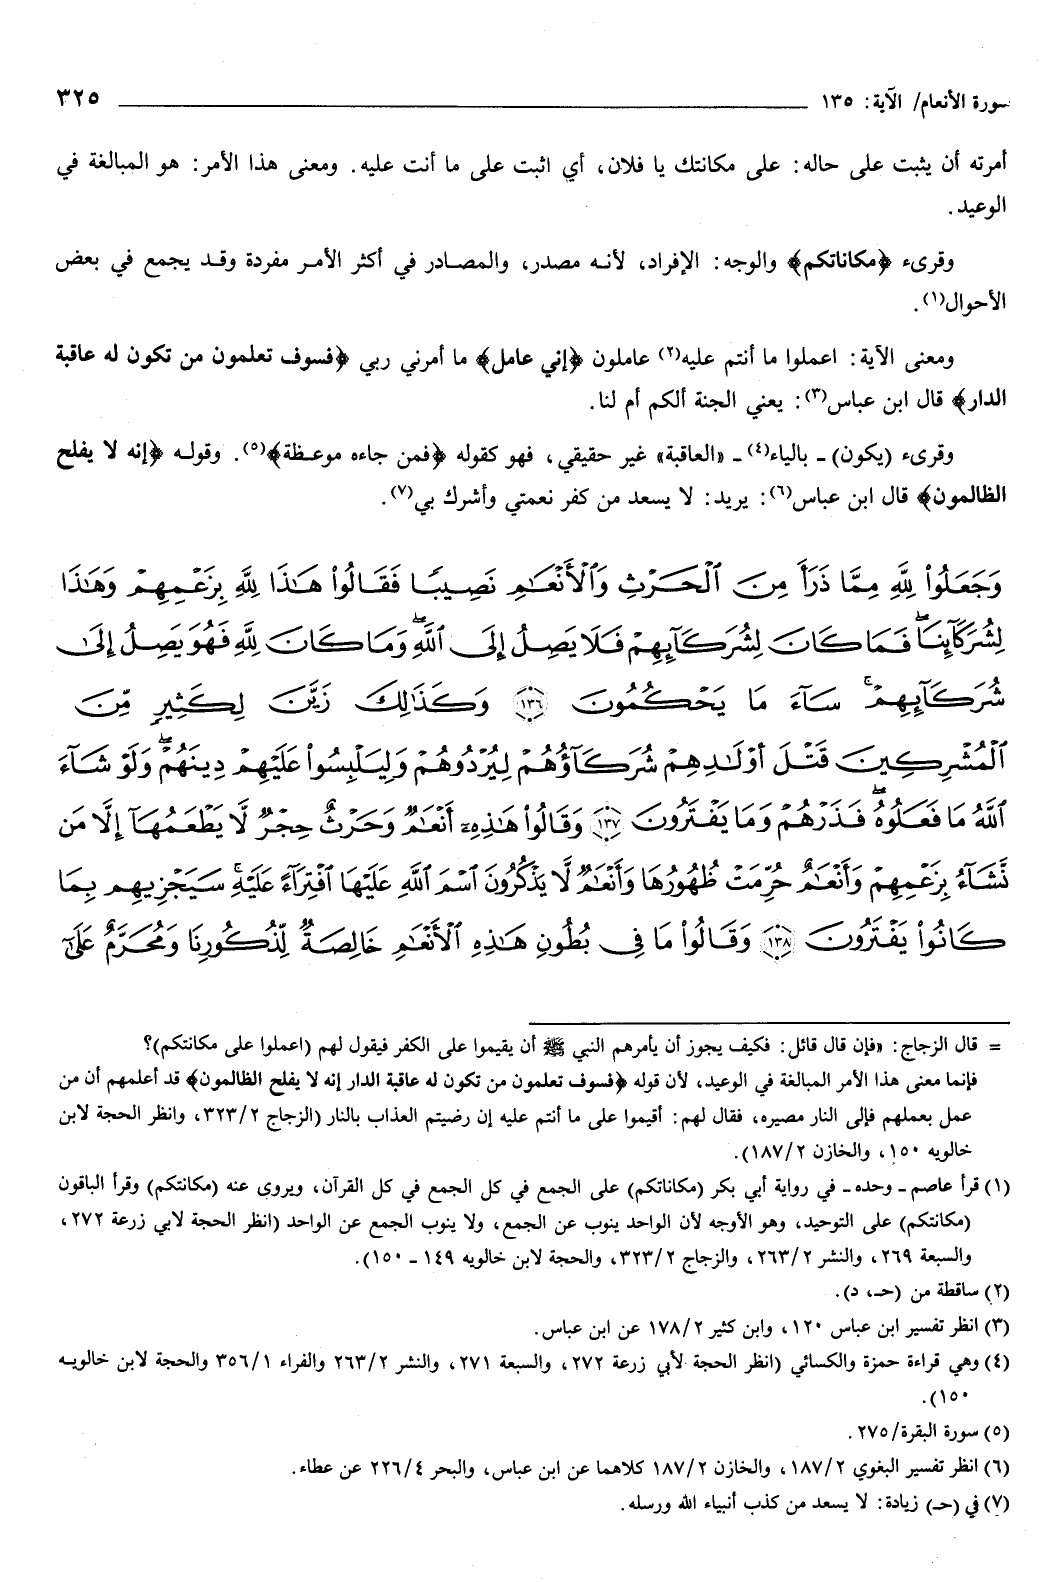 سورة الأنعام/ الآية: ١٣٥ ٣٢٥
أمرته أن يثبت على حاله: على مكانتك يا فلان، أي اثبت على ما أنت عليه. ومعنى هذا الأمر: هو المبالغة في
الوعيد.
وقرىء ﴿مكاناتكم﴾ والوجه: الإفراد، لأنه مصدر، والمصادر في أكثر الأمر مفردة وقد يجمع في بعض
الأحوال(١).
ومعنى الآية: اعملوا ما أنتم عليه(٢) عاملون ﴿إني عامل﴾ ما أمرني ربي ﴿فسوف تعلمون من تكون له عاقبة
الدار﴾ قال ابن عباس(٣): يعني الجنة ألكم أم لنا.
وقرىء (يكون) ـ بالياء(٤) ـ «العاقبة» غير حقيقي، فهو كقوله ﴿فمن جاءه موعظة﴾(٥). وقوله ﴿إنه لا يفلح
الظالمون﴾ قال ابن عباس(٦): يريد: لا يسعد من كفر نعمتي وأشرك بي(٧).
وَجَعَلُوا۟ لِلَّهِ مِمَّا ذَرَأَ مِنَ ٱلْحَرْثِ وَٱلْأَنْعَـٰمِ نَصِيبًا فَقَالُوا۟ هَـٰذَا لِلَّهِ بِزَعْمِهِمْ وَهَـٰذَا
لِشُرَكَآئِنَا ۖ فَمَا كَانَ لِشُرَكَآئِهِمْ فَلَا يَصِلُ إِلَى ٱللَّهِ ۖ وَمَا كَانَ لِلَّهِ فَهُوَ يَصِلُ إِلَىٰ
شُرَكَآئِهِمْ ۗ سَآءَ مَا يَحْكُمُونَ ١٣٦ وَكَذَٰلِكَ زَيَّنَ لِكَثِيرٍ مِّنَ
ٱلْمُشْرِكِينَ قَتْلَ أَوْلَـٰدِهِمْ شُرَكَآؤُهُمْ لِيُرْدُوهُمْ وَلِيَلْبِسُوا۟ عَلَيْهِمْ دِينَهُمْ ۖ وَلَوْ شَآءَ
ٱللَّهُ مَا فَعَلُوهُ ۖ فَذَرْهُمْ وَمَا يَفْتَرُونَ ١٣٧ وَقَالُوا۟ هَـٰذِهِۦٓ أَنْعَـٰمٌ وَحَرْثٌ حِجْرٌ لَّا يَطْعَمُهَآ إِلَّا مَن
نَّشَآءُ بِزَعْمِهِمْ وَأَنْعَـٰمٌ حُرِّمَتْ ظُهُورُهَا وَأَنْعَـٰمٌ لَّا يَذْكُرُونَ ٱسْمَ ٱللَّهِ عَلَيْهَا ٱفْتِرَآءً عَلَيْهِ ۚ سَيَجْزِيهِم بِمَا
كَانُوا۟ يَفْتَرُونَ ١٣٨ وَقَالُوا۟ مَا فِى بُطُونِ هَـٰذِهِ ٱلْأَنْعَـٰمِ خَالِصَةٌ لِّذُكُورِنَا وَمُحَرَّمٌ عَلَىٰٓ
= قال الزجاج: «فإن قال قائل: فكيف يجوز أن يأمرهم النبي ﷺ أن يقيموا على الكفر فيقول لهم (اعملوا على مكانتكم)؟
فإنما معنى هذا الأمر المبالغة في الوعيد، لأن قوله ﴿فسوف تعلمون من تكون له عاقبة الدار إنه لا يفلح الظالمون﴾ قد أعلمهم أن من
عمل بعملهم فإلى النار مصيره، فقال لهم: أقيموا على ما أنتم عليه إن رضيتم العذاب بالنار (الزجاج ٣٢٣/٢، وانظر الحجة لابن
خالويه ١٥٠، والخازن ١٨٧/٢).
(١) قرأ عاصم ـ وحده ـ في رواية أبي بكر (مكاناتكم) على الجمع في كل الجمع في كل القرآن، ويروى عنه (مكانتكم) وقرأ الباقون
(مكانتكم) على التوحيد، وهو الأوجه لأن الواحد ينوب عن الجمع، ولا ينوب الجمع عن الواحد (انظر الحجة لابي زرعة ٢٧٢،
والسبعة ٢٦٩، والنشر ٢٦٣/٢، والزجاج ٣٢٣/٢، والحجة لابن خالويه ١٤٩ ـ ١٥٠).
(٢) ساقطة من (حـ، د).
(٣) انظر تفسير ابن عباس ١٢٠، وابن كثير ١٧٨/٢ عن ابن عباس.
(٤) وهي قراءة حمزة والكسائي (انظر الحجة لأبي زرعة ٢٧٢، والسبعة ٢٧١، والنشر ٢٦٣/٢ والفراء ٣٥٦/١ والحجة لابن خالويه
١٥٠).
(٥) سورة البقرة/٢٧٥.
(٦) انظر تفسير البغوي ١٨٧/٢، والخازن ١٨٧/٢ كلاهما عن ابن عباس، والبحر ٢٢٦/٤ عن عطاء.
(٧) في (حـ) زيادة: لا يسعد من كذب أنبياء الله ورسله.